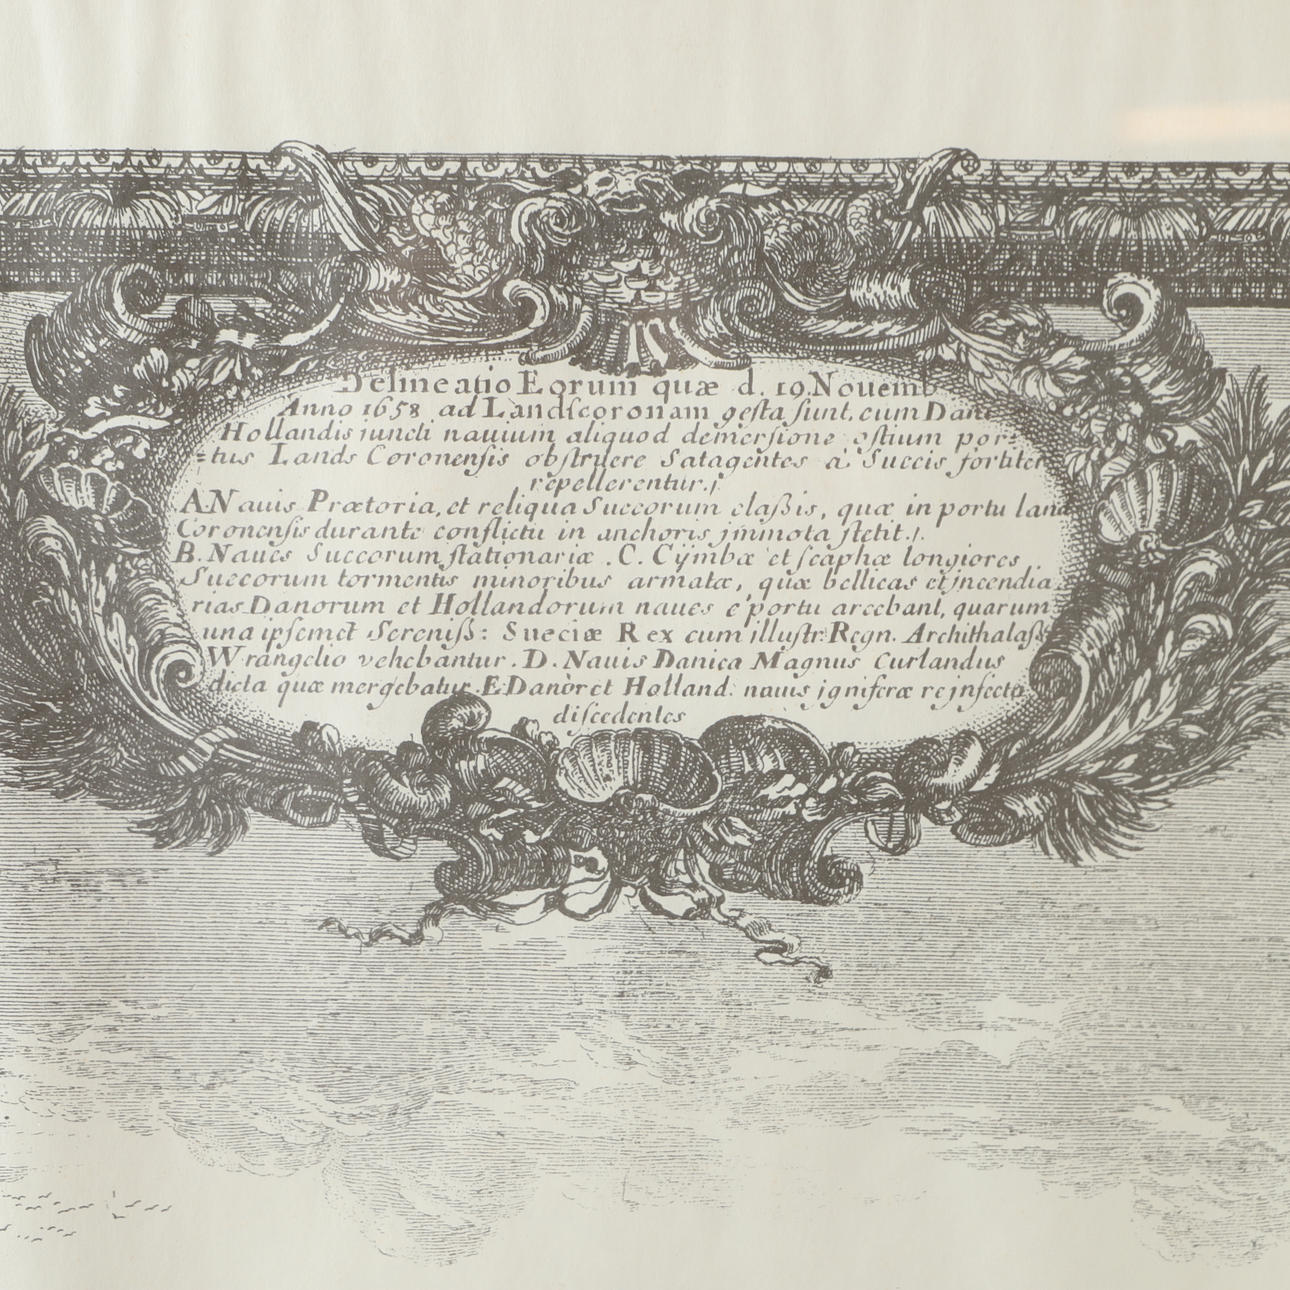 Delineatio Eorum quæ d. 19. Nouemb
Anno 1658 ad Landscoronam gesta sunt, cum Dani
Hollandis iuncti nauium aliquod demersione ostium por=
=tus Lands Coronensis obstruere Satagentes à Suecis fortiter
repellerentur./
A. Nauis Prætoria, et reliqua Suecorum claßis, quæ in portu land
Coronensis durante conflictu in anchoris jmmota stetit./
B. Naues Suecorum stationariæ . C. Cÿmbæ et scaphæ longiores
Suecorum tormentis minoribus armatæ, quæ bellicas et jncendia
rias Danorum et Hollandorum naues e portu arcebant, quarum
una ipsemet Sereniß: Sueciæ Rex cum illustr: Regn. Archithalaß
Wrangelio vehebantur . D. Nauis Danica Magnus Curlandus
dicta quæ mergebatur. E Danor et Holland: nauis igniferæ re jnfecta
discedentes